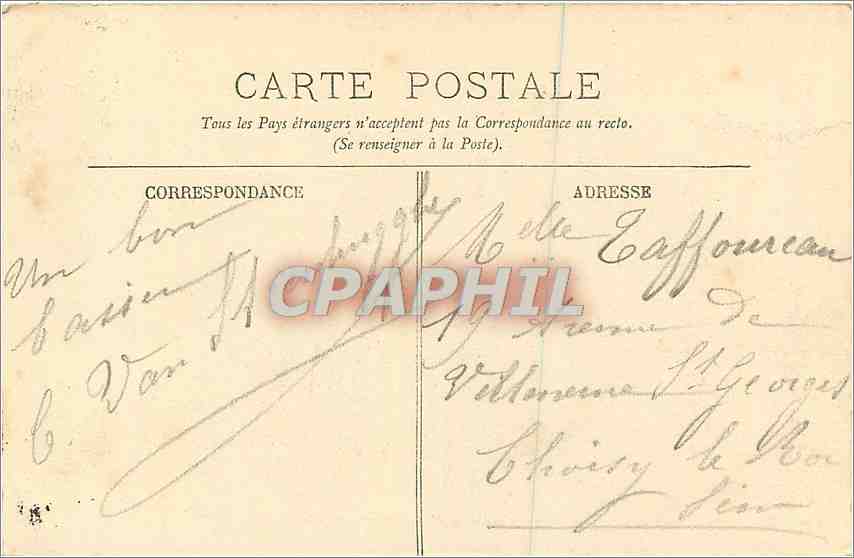 CARTE POSTALE
Tous les Pays étrangers n'acceptent pas la Correspondance au recto.
(Se renseigner à la Poste).
CORRESPONDANCE
ADRESSE
Un bon
C. Van
CPAPHIL
Melle Taffoureau
19 Avenue de
Villeneuve St Georges
Choisy le Roi
Seine